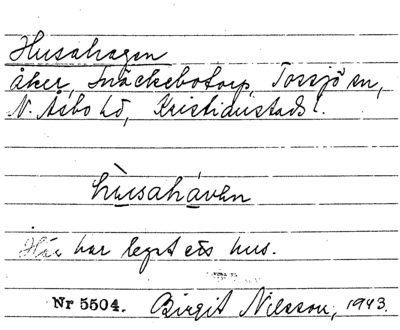 Husahagen
åker, Snäckebotorp, Tossjö sn,
N. Åsbo hd, Kristianstads l.
hùsahávèn
Här har legat ett hus.
Nr 5504. Birgit Nilsson, 1943.